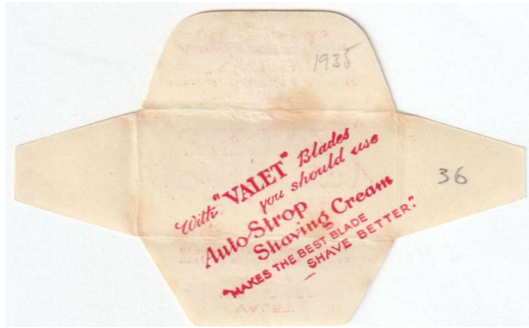 1935
36
With "VALET" Blades
you should use
Auto-Strop
Shaving Cream
"MAKES THE BEST BLADE
SHAVE BETTER."